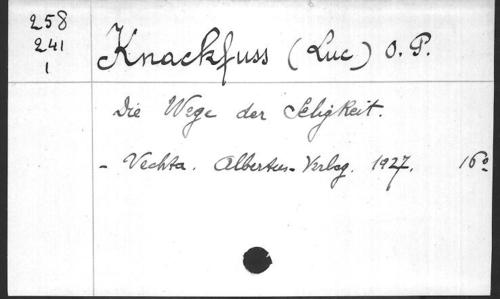 258
241
1
Knackfuss (Luc) O. P.
Die Wege der Seligkeit.
- Vechta. Albertus-Verlag. 1927. 16°